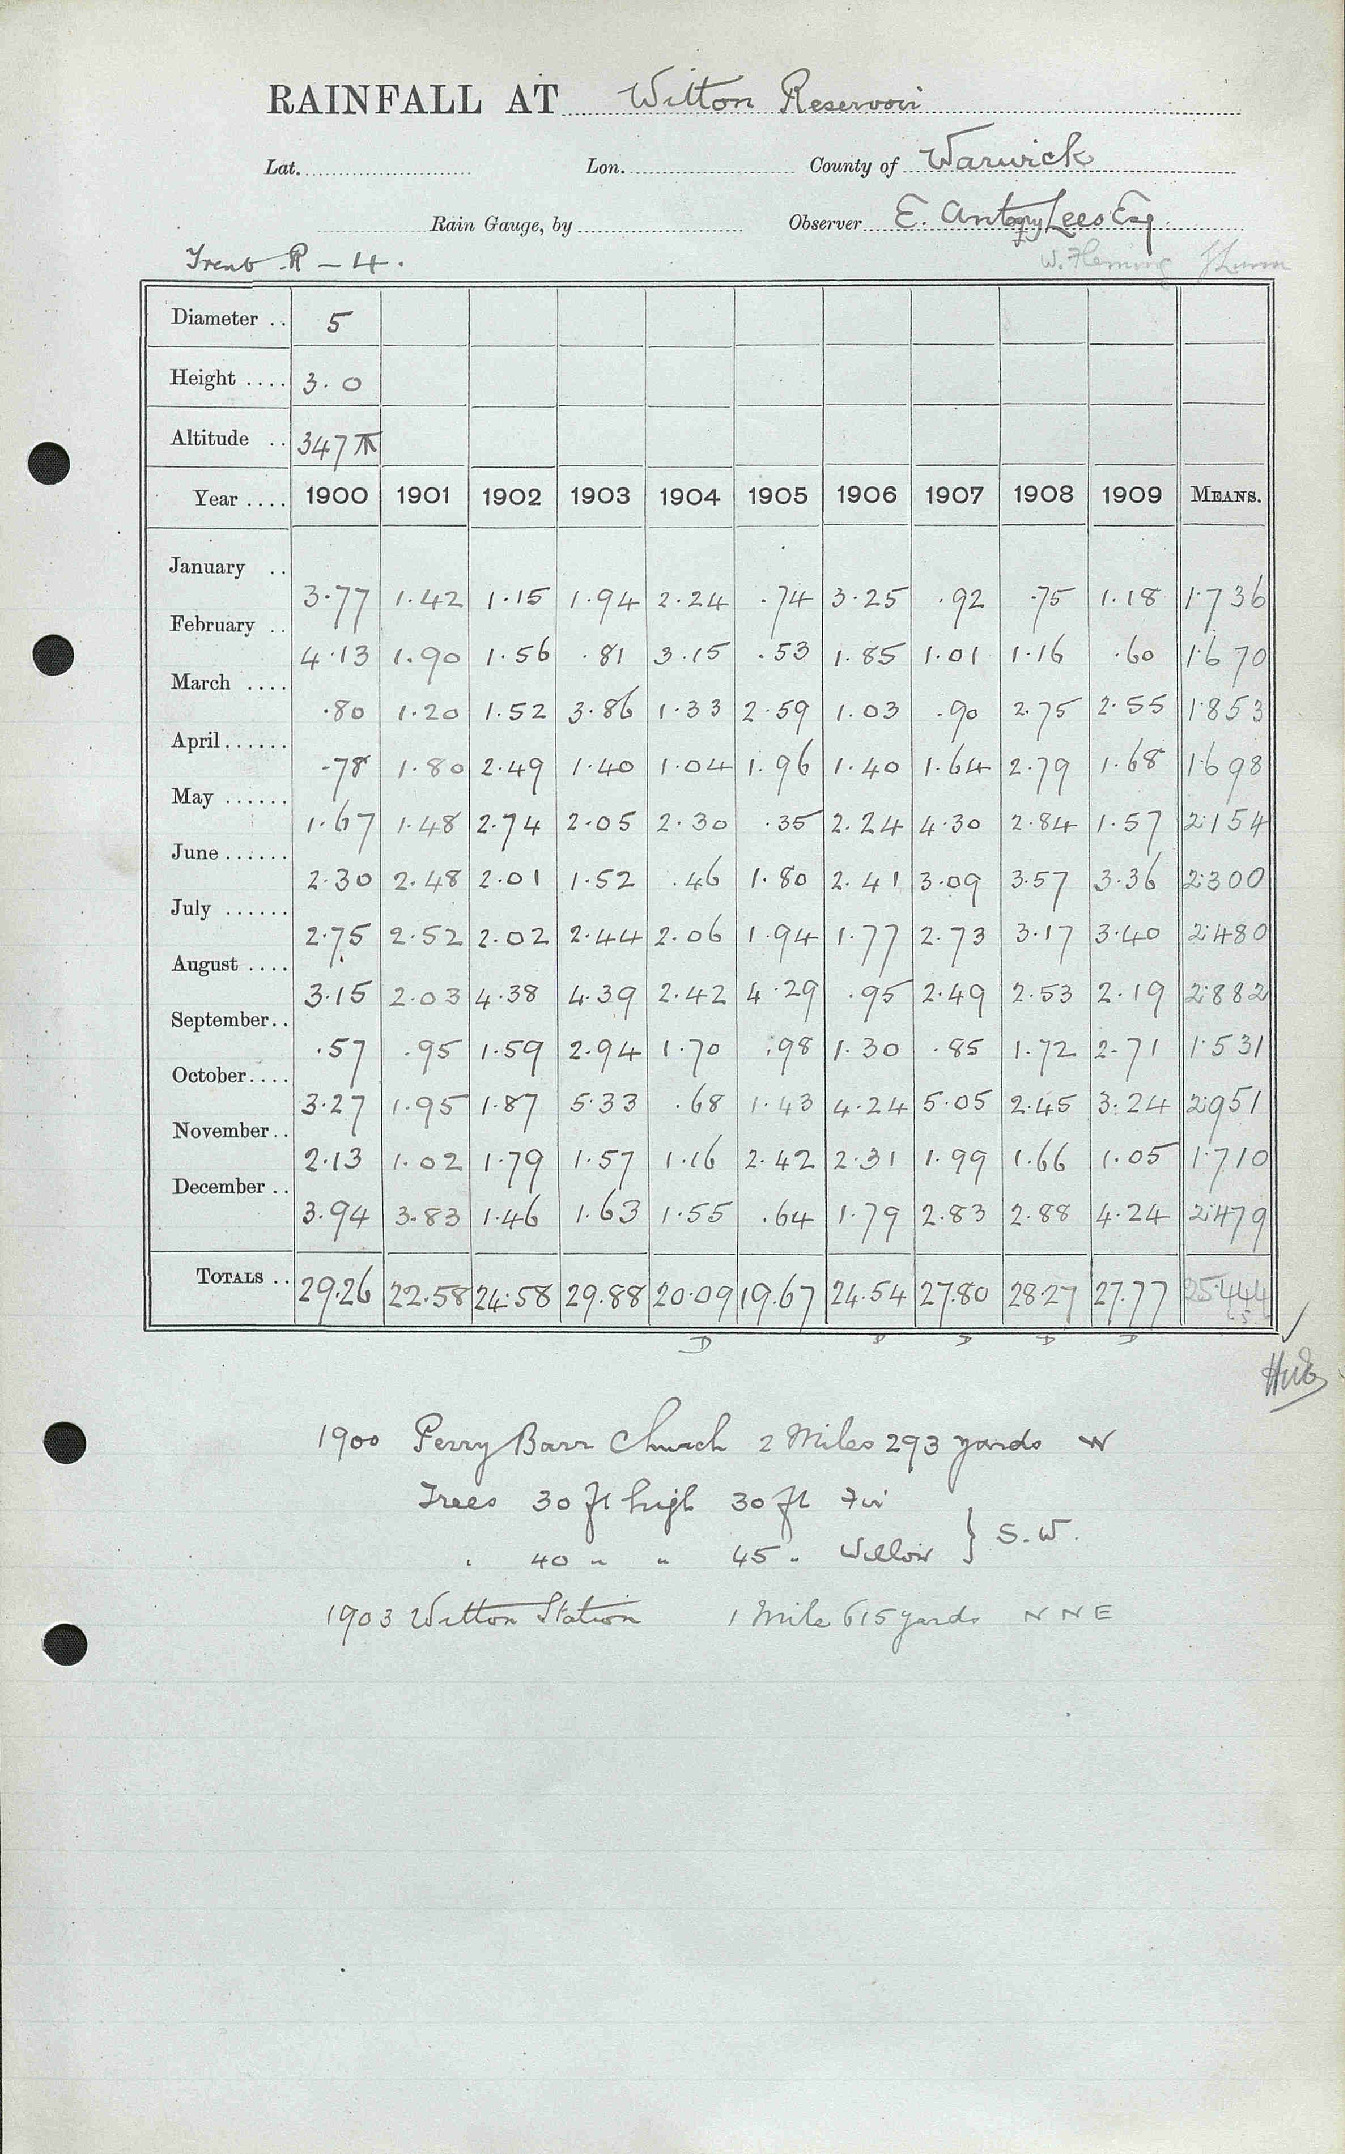 RAINFALL AT Witton Reservoir
Lat. Lon. County of Warwick
Rain Gauge, by Observer E. Lees Esq.
Trent R - 4. W. Fleming
Diameter .. 5
Height .... 3.0
Altitude .. 347
Year .... 1900 1901 1902 1903 1904 1905 1906 1907 1908 1909 MEANS.
January .. 3.77 1.42 1.15 1.94 2.24 .74 3.25 .92 .75 1.18 1.736
February .. 4.13 1.90 1.56 .81 3.15 .53 1.85 1.01 1.16 .60 1.670
March .... .80 1.20 1.52 3.86 1.33 2.59 1.03 .90 2.75 2.55 1.853
April...... .78 1.80 2.49 1.40 1.04 1.96 1.40 1.64 2.79 1.68 1.698
May ...... 1.67 1.48 2.74 2.05 2.30 .35 2.24 4.30 2.84 1.57 2.154
June...... 2.30 2.48 2.01 1.52 .46 1.80 2.41 3.09 3.57 3.36 2.300
July ...... 2.75 2.52 2.02 2.44 2.06 1.94 1.77 2.73 3.17 3.40 2.480
August .... 3.15 2.03 4.38 4.39 2.42 4.29 .95 2.49 2.53 2.19 2.882
September.. .57 .95 1.59 2.94 1.70 .98 1.30 .85 1.72 2.71 1.531
October.... 3.27 1.95 1.87 5.33 .68 1.43 4.24 5.05 2.45 3.24 2.951
November.. 2.13 1.02 1.79 1.57 1.16 2.42 2.31 1.99 1.66 1.05 1.710
December .. 3.94 3.83 1.46 1.63 1.55 .64 1.79 2.83 2.88 4.24 2.479
TOTALS .. 29.26 22.58 24.58 29.88 20.09 19.67 24.54 27.80 28.27 27.77 25.444
D D D D D
1900 Perry Barr Church 2 Miles 293 yards W
Trees 30 ft high 30 ft Fir
" 40 " " 45 " Willow } S.W.
1903 Witton Station 1 Mile 615 yards NNE